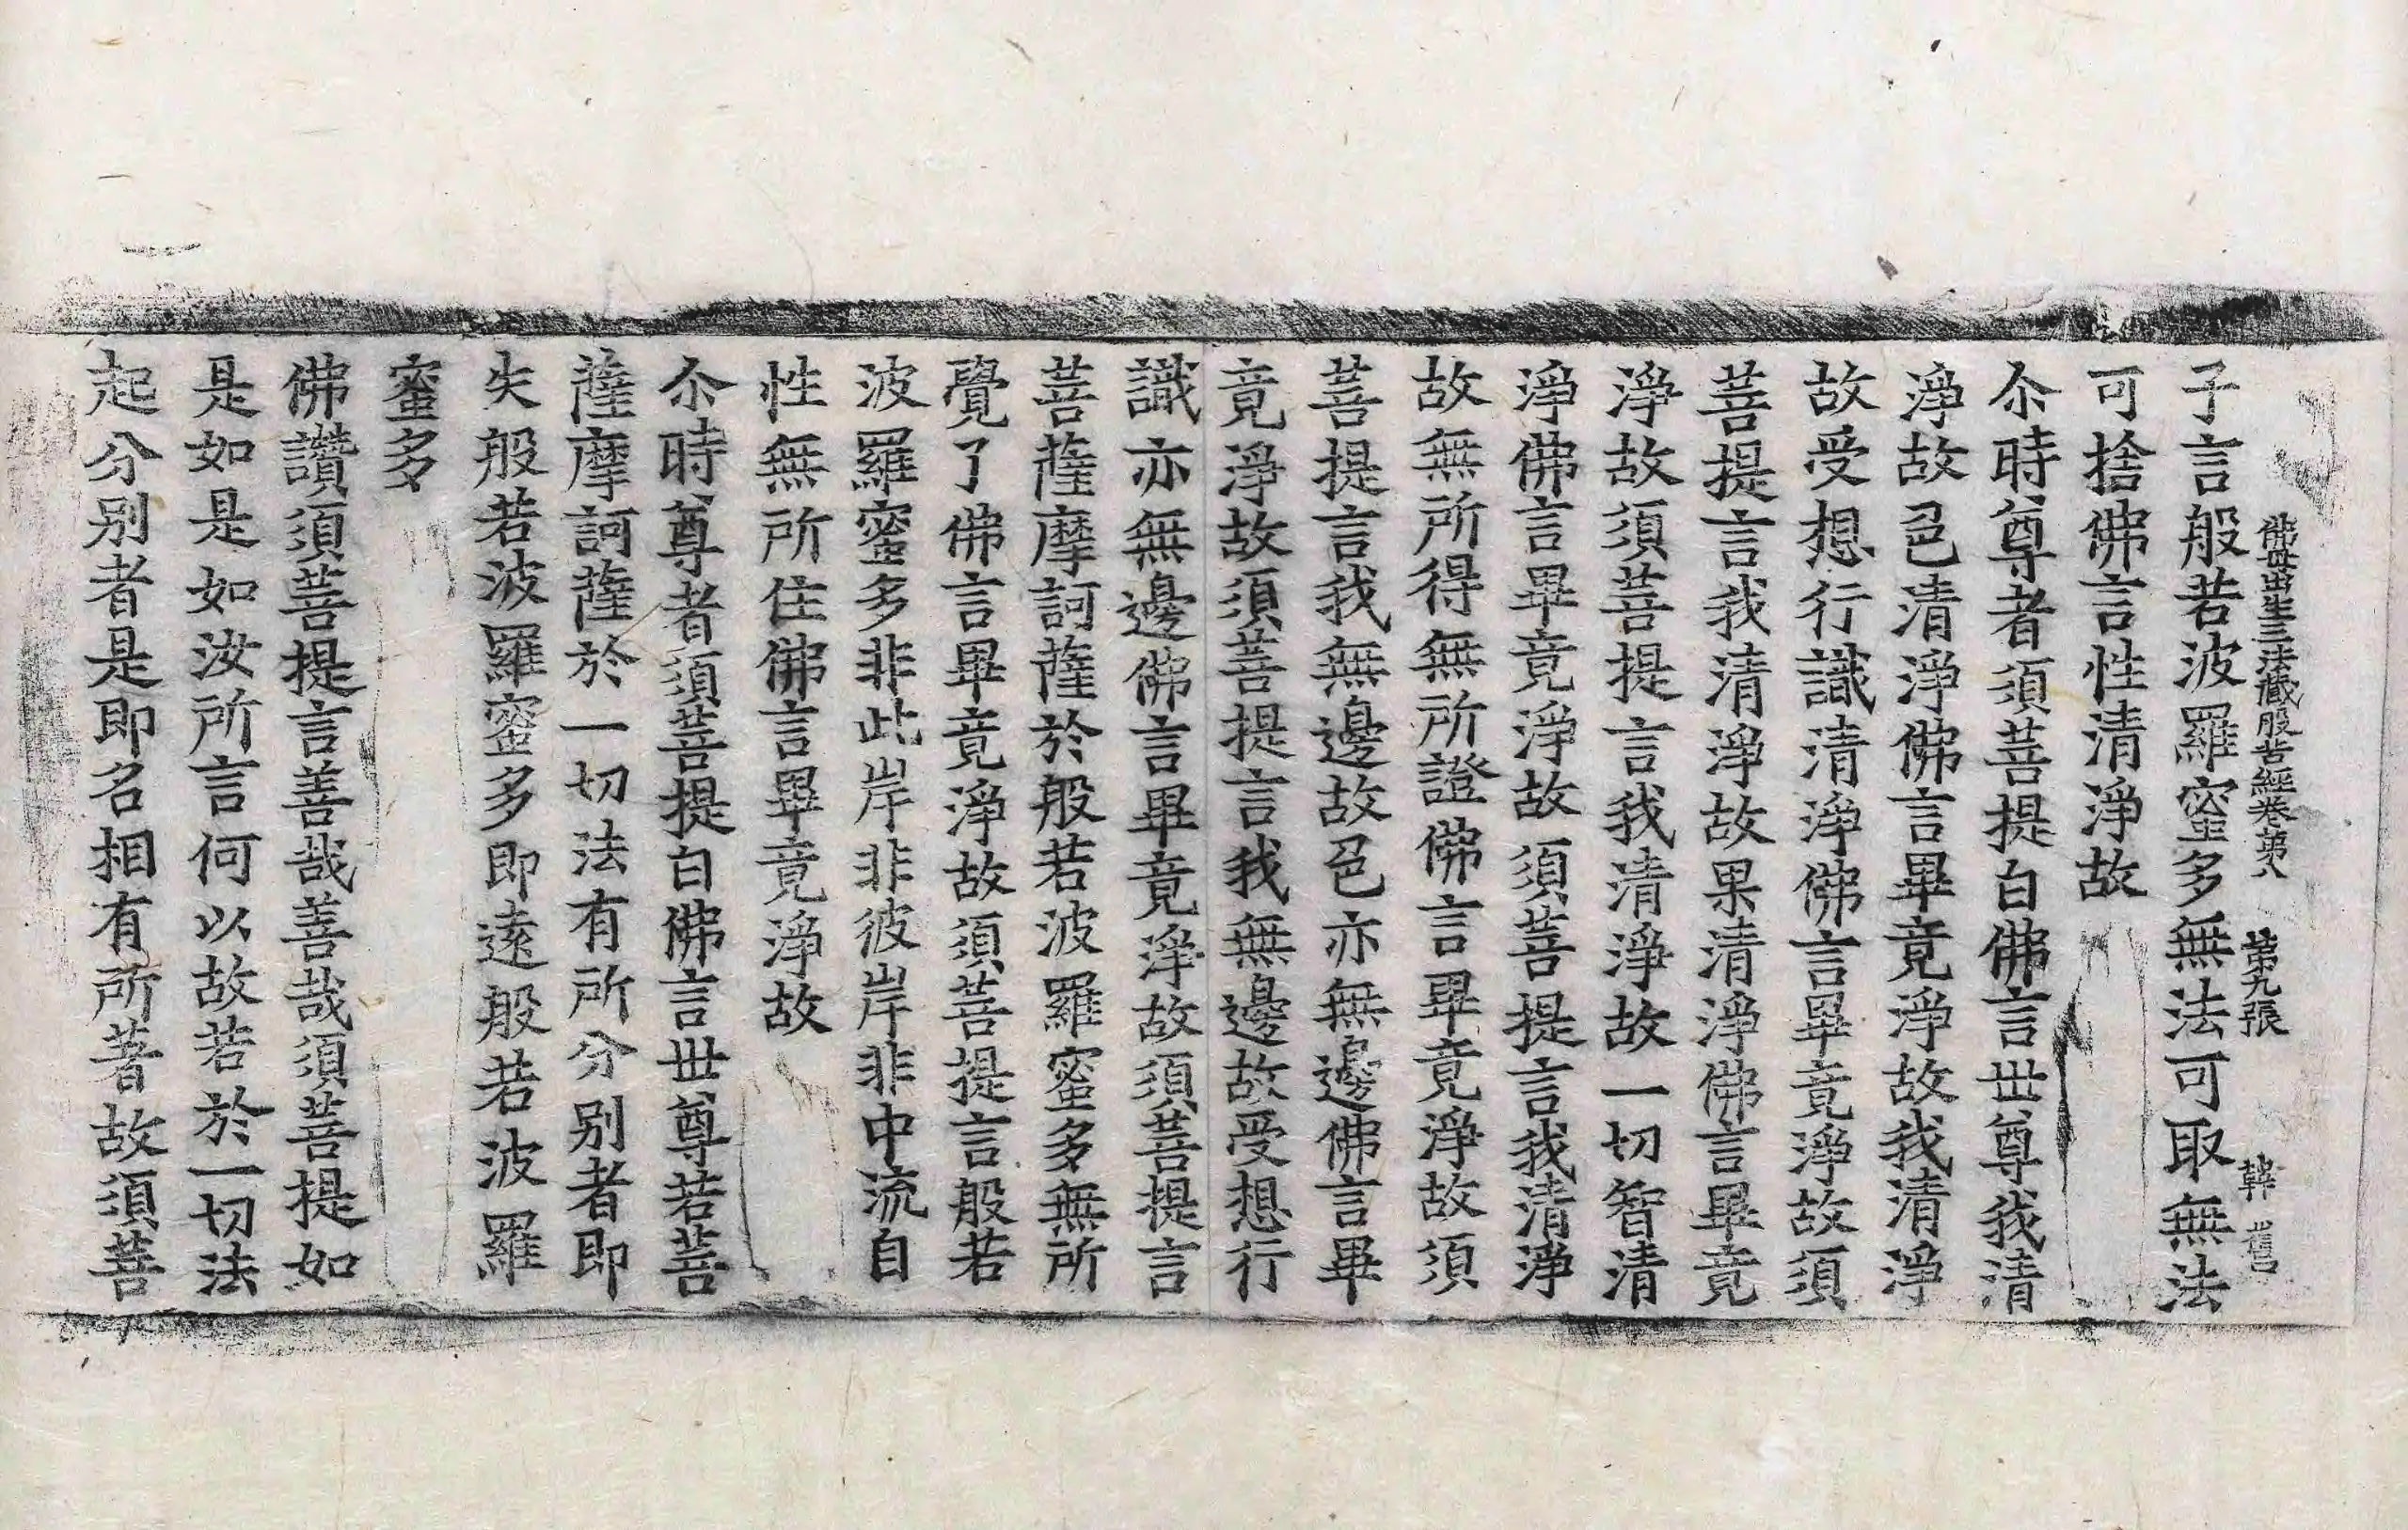 佛母出生三法藏般若經卷第八　第九張　韓
子言般若波羅蜜多無法可取無法
可捨佛言性清淨故
尒時尊者須菩提白佛言世尊我清
淨故色清淨佛言畢竟淨故我清淨
故受想行識清淨佛言畢竟淨故須
菩提言我清淨故果清淨佛言畢竟
淨故須菩提言我清淨故一切智清
淨佛言畢竟淨故須菩提言我清淨
故無所得無所證佛言畢竟淨故須
菩提言我無邊故色亦無邊佛言畢
竟淨故須菩提言我無邊故受想行
識亦無邊佛言畢竟淨故須菩提言
菩薩摩訶薩於般若波羅蜜多無所
覺了佛言畢竟淨故須菩提言般若
波羅蜜多非此岸非彼岸非中流自
性無所住佛言畢竟淨故
尒時尊者須菩提白佛言世尊若菩
薩摩訶薩於一切法有所分别者即
失般若波羅蜜多即遠般若波羅
蜜多
佛讚須菩提言善哉善哉須菩提如
是如是如汝所言何以故若於一切法
起分别者是即名相有所著故須菩